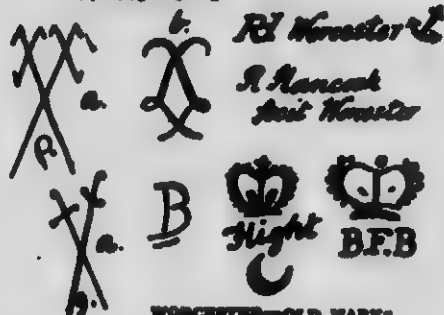 b.
RH Worcester
a.
R Hancock
fecit Worcester
a.
B
Flight
B.F.B
WORCESTER—OLD MARKS